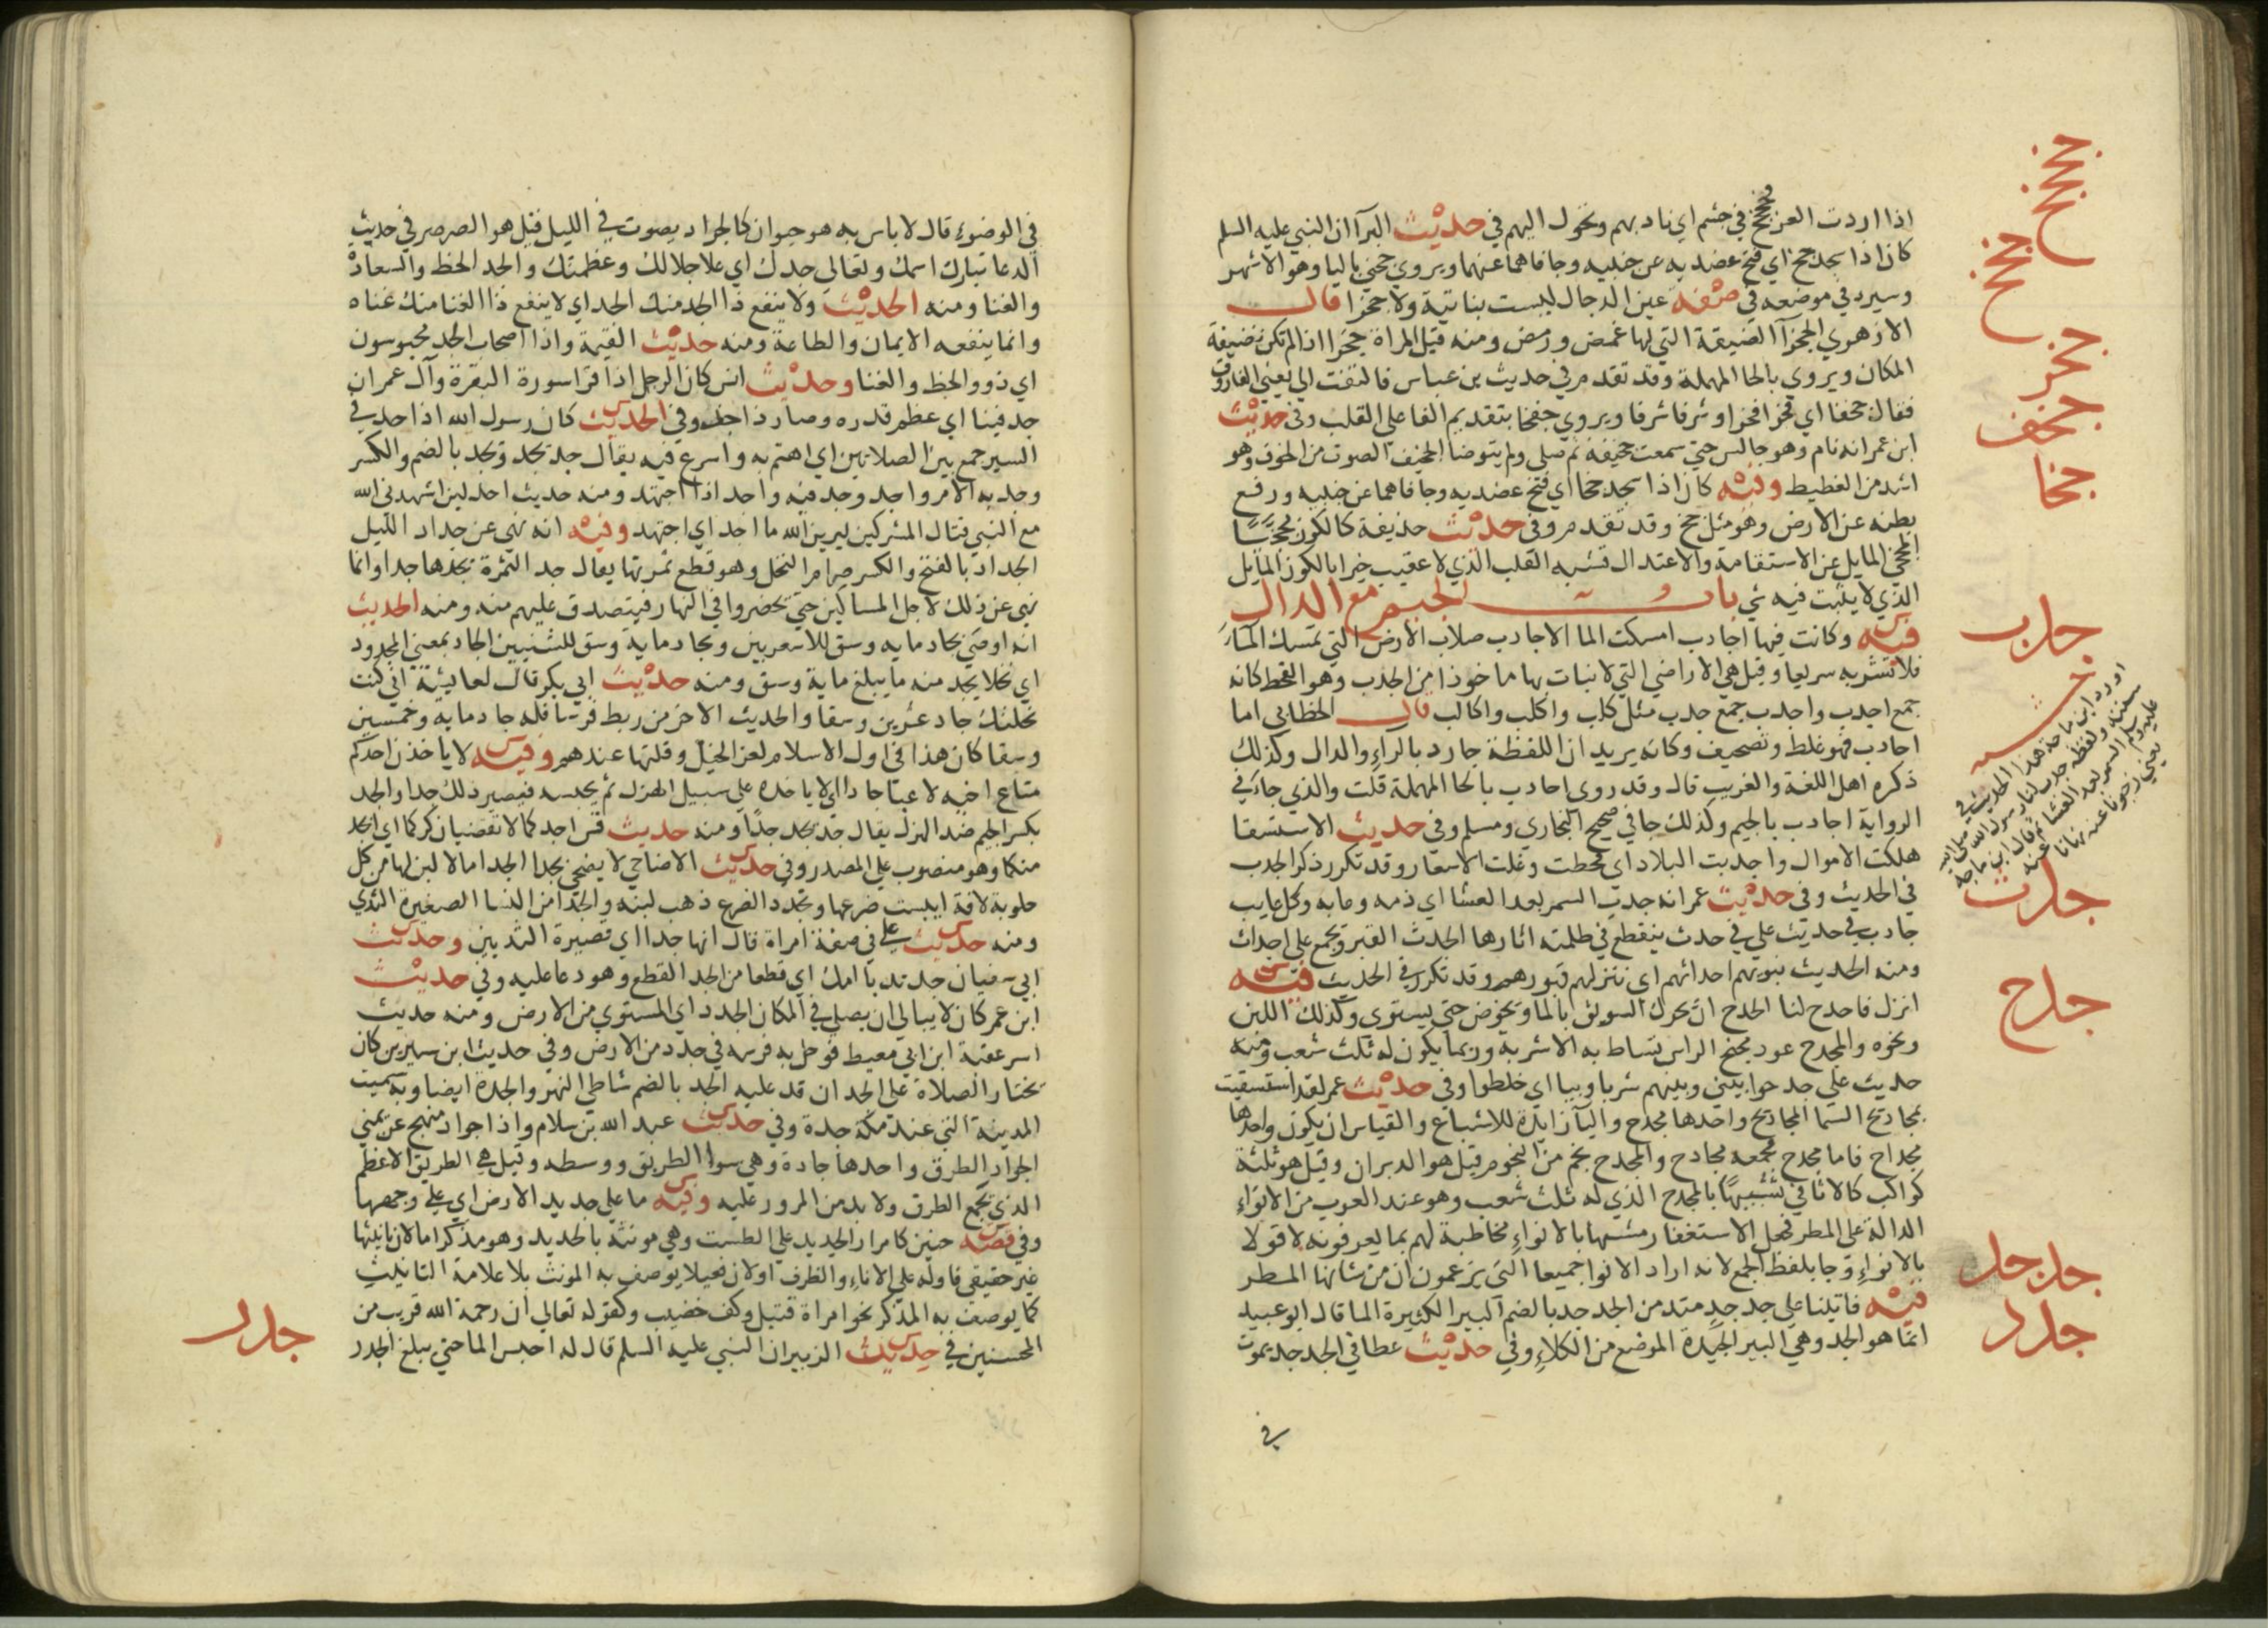 اذا اردت العز فجخجخ في جشم اي ناد بهم وتحول اليهم في حديث البرآ ان النبي عليه السلم
كان اذا سجد جخ اي فتح عضديه عن جنبيه وجافاهما عنهما ويروي جخي باليا وهو الاشهر
وسيرد في موضعه في صفة عين الدجال ليست بناتية ولا جخرا قال
الازهوي الجخرآ الضيقة التي لها غمص ورمص ومنه قيل المراة جخرا اذا لم تكن نضيفة
المكان ويروي بالحا المهملة وقد تقدم في حديث بن عباس فالتفت الي يعني الفاروق
فقال جخفا اي فخرا فخرا وشرفا شرفا ويروي جفخا بتقديم الفا علي القلب وفي حديث
ابن عمر انه نام وهو جالس حتي سمعت جخيفه ثم صلي ولم يتوضا الجخيف الصوت من الجوف وهو
اشد من الغطيط وفيه كان اذا سجد جخا اي فتح عضديه وجافاهما عن جنبيه ورفع
بطنه عن الارض وهو مثل جخ وقد تقدم وفي حديث حذيفة كالكوز مجخيا
المجخي المايل عن الاستقامة والاعتدال فشبه القلب الذي لا عقيب خيرا بالكوز المايل
الذي لا يثبت فيه شي باب الجيم مع الدال
فيه وكانت فيها اجادب امسكت الما الاجادب صلاب الارض التي تمسك المآ
فلا تشربه سريعا وقيل هي الاراضي التي لا نبات بها ماخوذ من الجدب وهو القحط كانه
جمع اجدب واجدب جمع جدب مثل كلب واكلب واكالب قال الخطابي اما
اجادب فهو غلط وتصحيف وكانه يريد ان اللفظة جارد بالراء والدال وكذلك
ذكره اهل اللغة والغريب قال وقد روي احادب بالحا المهملة قلت والذي جآء في
الرواية اجادب بالجيم وكذلك جا في صحيح البخاري ومسلم وفي حديث الاستسقا
هلكت الاموال واجدبت البلاد اي قحطت وغلت الاسعار وقد تكرر ذكر الجدب
في الحديث وفي حديث عمر انه جدب السمر بعد العشا اي ذمه وعابه وكل عايب
جادب في حديث علي في جدث ينقطع في ظلمته اثارها الجدث القبر ويجمع علي اجداث
ومنه الحديث نبويهم اجداثهم اي ننزلهم قبورهم وقد تكرر في الحديث فيه
انزل فاجدح لنا الجدح ان يحرك السويق بالما ويخوض حتي يستوي وكذلك اللبن
ونحوه والمجدح عود مجنح الراس تساط به الاشربة وربما يكون له ثلث شعب ومنه
حديث علي جدحوا بيني وبينهم شربا وبيا اي خلطوا وفي حديث عمر لقد استسقيت
بمجاديح السما المجاديح واحدها مجدح واليآ زايدة للاشباع والقياس ان يكون واحدها
مجداح فاما مجدح فجمعه مجادح والمجدح نجم من النجوم قيل هو الدبران وقيل هو ثلثة
كواكب كالاثافي تشبيها بالمجدح الذي له ثلث شعب وهو عند العرب من الانواء
الدالة علي المطر فجعل الاستغفار مشبها بالانواء مخاطبة لهم بما يعرفونه لا قولا
بالانواء وجا بلفظ الجمع لانه اراد الانوا جميعا التي يزعمون ان من شانها المطر
فيه فاتينا علي جدجد متدمن الجدجد بالضم البير الكثيرة الما قال ابو عبيد
انما هو الجد وهي البير الجيدة الموضع من الكلاء وفي حديث عطا في الجدجد يموت
في
جخجخ
جخخ
جخر
جخف
جخا
جدب
اورد ابن ماجة هذا الحديث في
سننه ولفظه جدب لنا رسول الله صلي الله
عليه وسلم السمر بعد العشا ثم قال ابن ماجة
يعني زجرنا عنه نهانا عنه
جدث
جدح
جدجد
جدد
في الوضوء قال لا باس به هو حيوان كالجراد يصوت في الليل قيل هو الصرصر في حديث
الدعا تبارك اسمك وتعالي جدك اي علا جلالك وعظمتك والجد الحظ والسعادة
والغنا ومنه الحديث ولا ينفع ذا الجد منك الجد اي لا ينفع ذا الغنا منك غناه
وانما ينفعه الايمان والطاعة ومنه حديث القيمة واذا اصحاب الجد محبوسون
اي ذوو الحظ والغنا وحديث انس كان الرجل اذا قرا سورة البقرة وآل عمران
جد فينا اي عظم قدره وصار ذا جد وفي الحديث كان رسول الله اذا جد في
السير جمع بين الصلاتين اي اهتم به واسرع فيه يقال جد يجد ويجد بالضم والكسر
وجد به الامر واجد وجد فيه واجد اذا اجتهد ومنه حديث احد لين اشهدني الله
مع النبي قتال المشركين ليرين الله ما اجد اي اجتهد وفيه انه نهي عن جداد الليل
الجداد بالفتح والكسر صرام النخل وهو قطع ثمرتها يقال جد الثمرة يجدها جدا وانما
نهي عن ذلك لاجل المساكين حتي يحضروا في النهار فيتصدق عليهم منه ومنه الحديث
انه اوصي بجاد مايه وسق للاشعريين وبجاد ماية وسق للشنيين الجاد بمعني المجدود
اي نخلا يجد منه ما يبلغ ماية وسق ومنه حديث ابي بكر قال لعايشة اني كنت
نحلتك جاد عشرين وسقا والحديث الاخر من ربط فرسا فله جاد مايه وخمسين
وسقا كان هذا في اول الاسلام لعز الخيل وقلتها عندهم وفيه لا ياخذن احدكم
متاع اخيه لاعبا جادا اي لا ياخذه علي سبيل الهزل ثم يحبسه فيصير ذلك جدا والجد
بكسر الجيم ضد الهزل يقال جد يجد جدا ومنه حديث قس اجدكما لا تقضيان كراكما اي ابجد
منكما وهو منصوب علي المصدر وفي حديث الاضاحي لا يضحي بجدا الجدا ما لا لبن لها من كل
حلوبة لافة ايبست ضرعها وتجدد الضرع ذهب لبنه والجدا من النسا الصغيرة الثدي
ومنه حديث علي في صفة امراة قال انها جدا اي قصيرة الثديين وحديث
ابي سفيان جد ثديا امك اي قطعا من الجد القطع وهو دعا عليه وفي حديث
ابن عمر كان لا يبالي ان يصلي في المكان الجدد اي المستوي من الارض ومنه حديث
اسر عقبة ابن ابي معيط فوحل به فرسه في جدد من الارض وفي حديث ابن سيرين كان
يختار الصلاة علي الجد ان قد عليه الجد بالضم شاطي النهر والجدة ايضا وبه سميت
المدينة التي عند مكة جدة وفي حديث عبد الله بن سلام واذا جواد منهج عن يميني
الجواد الطرق واحدها جادة وهي سوا الطريق ووسطه وقيل هي الطريق الاعظم
الذي يجمع الطرق ولا بد من المرور عليه وفيه ما علي جديد الارض اي علي وجهها
وفي قصة حنين كامرار الحديد علي الطست وهي مونثة بالحديد وهو مذكر اما لان تانيثها
غير حقيقي فاوله علي الاناء والظرف او لان فعيلا يوصف به المونث بلا علامة التانيث
كما يوصف به المذكر نحو امراة قتيل وكف خضيب وكقوله تعالي ان رحمة الله قريب من
المحسنين في حديث الزبير ان النبي عليه السلم قال له احبس الما حتي يبلغ الجدر
جدر